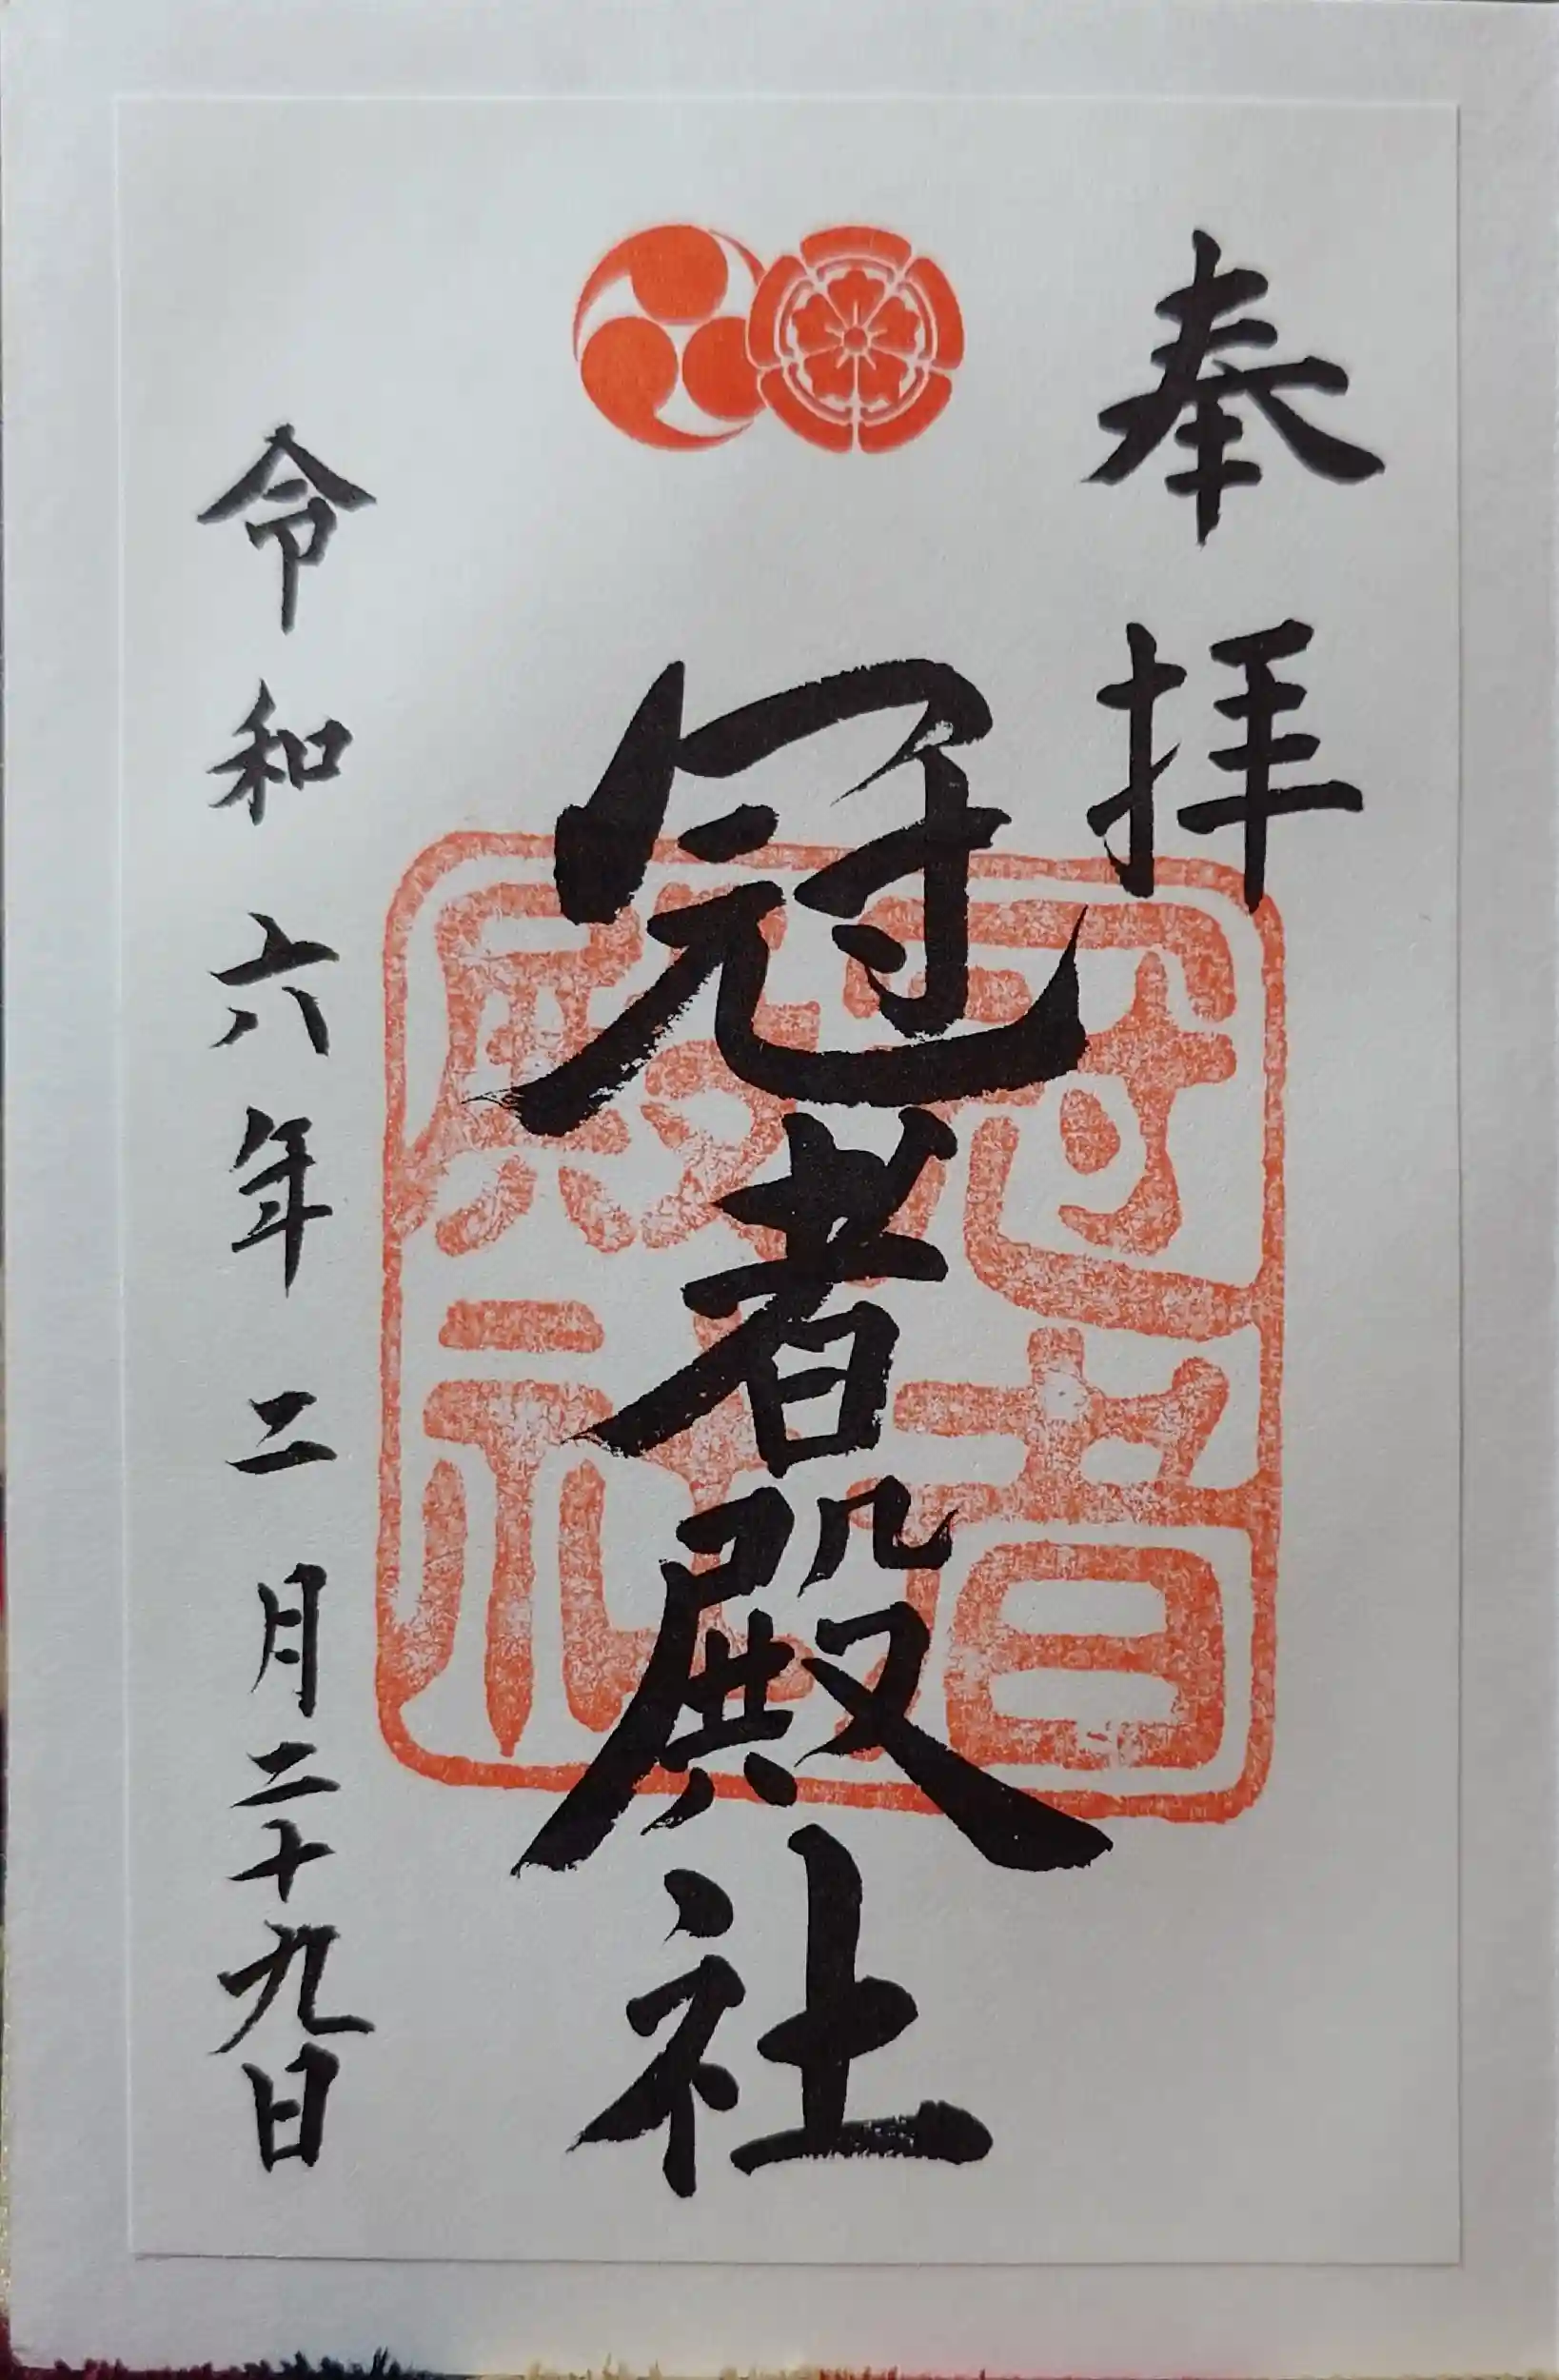 奉拝
冠者殿社
冠者殿社
令和六年二月二十九日